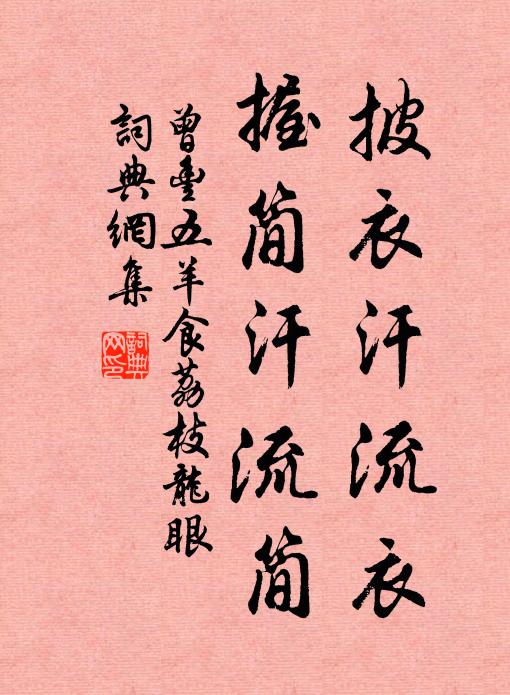 披衣汗流衣
握简汗流简
曾豐五羊食荔枝龍眼
詞典網集
詞典網印